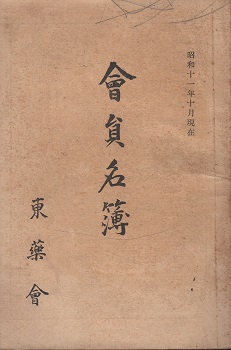 昭和十一年十月現在
會員名簿
東藥會